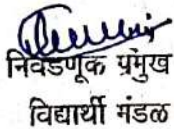 निवडणूक प्रमुख
विद्यार्थी मंडळ